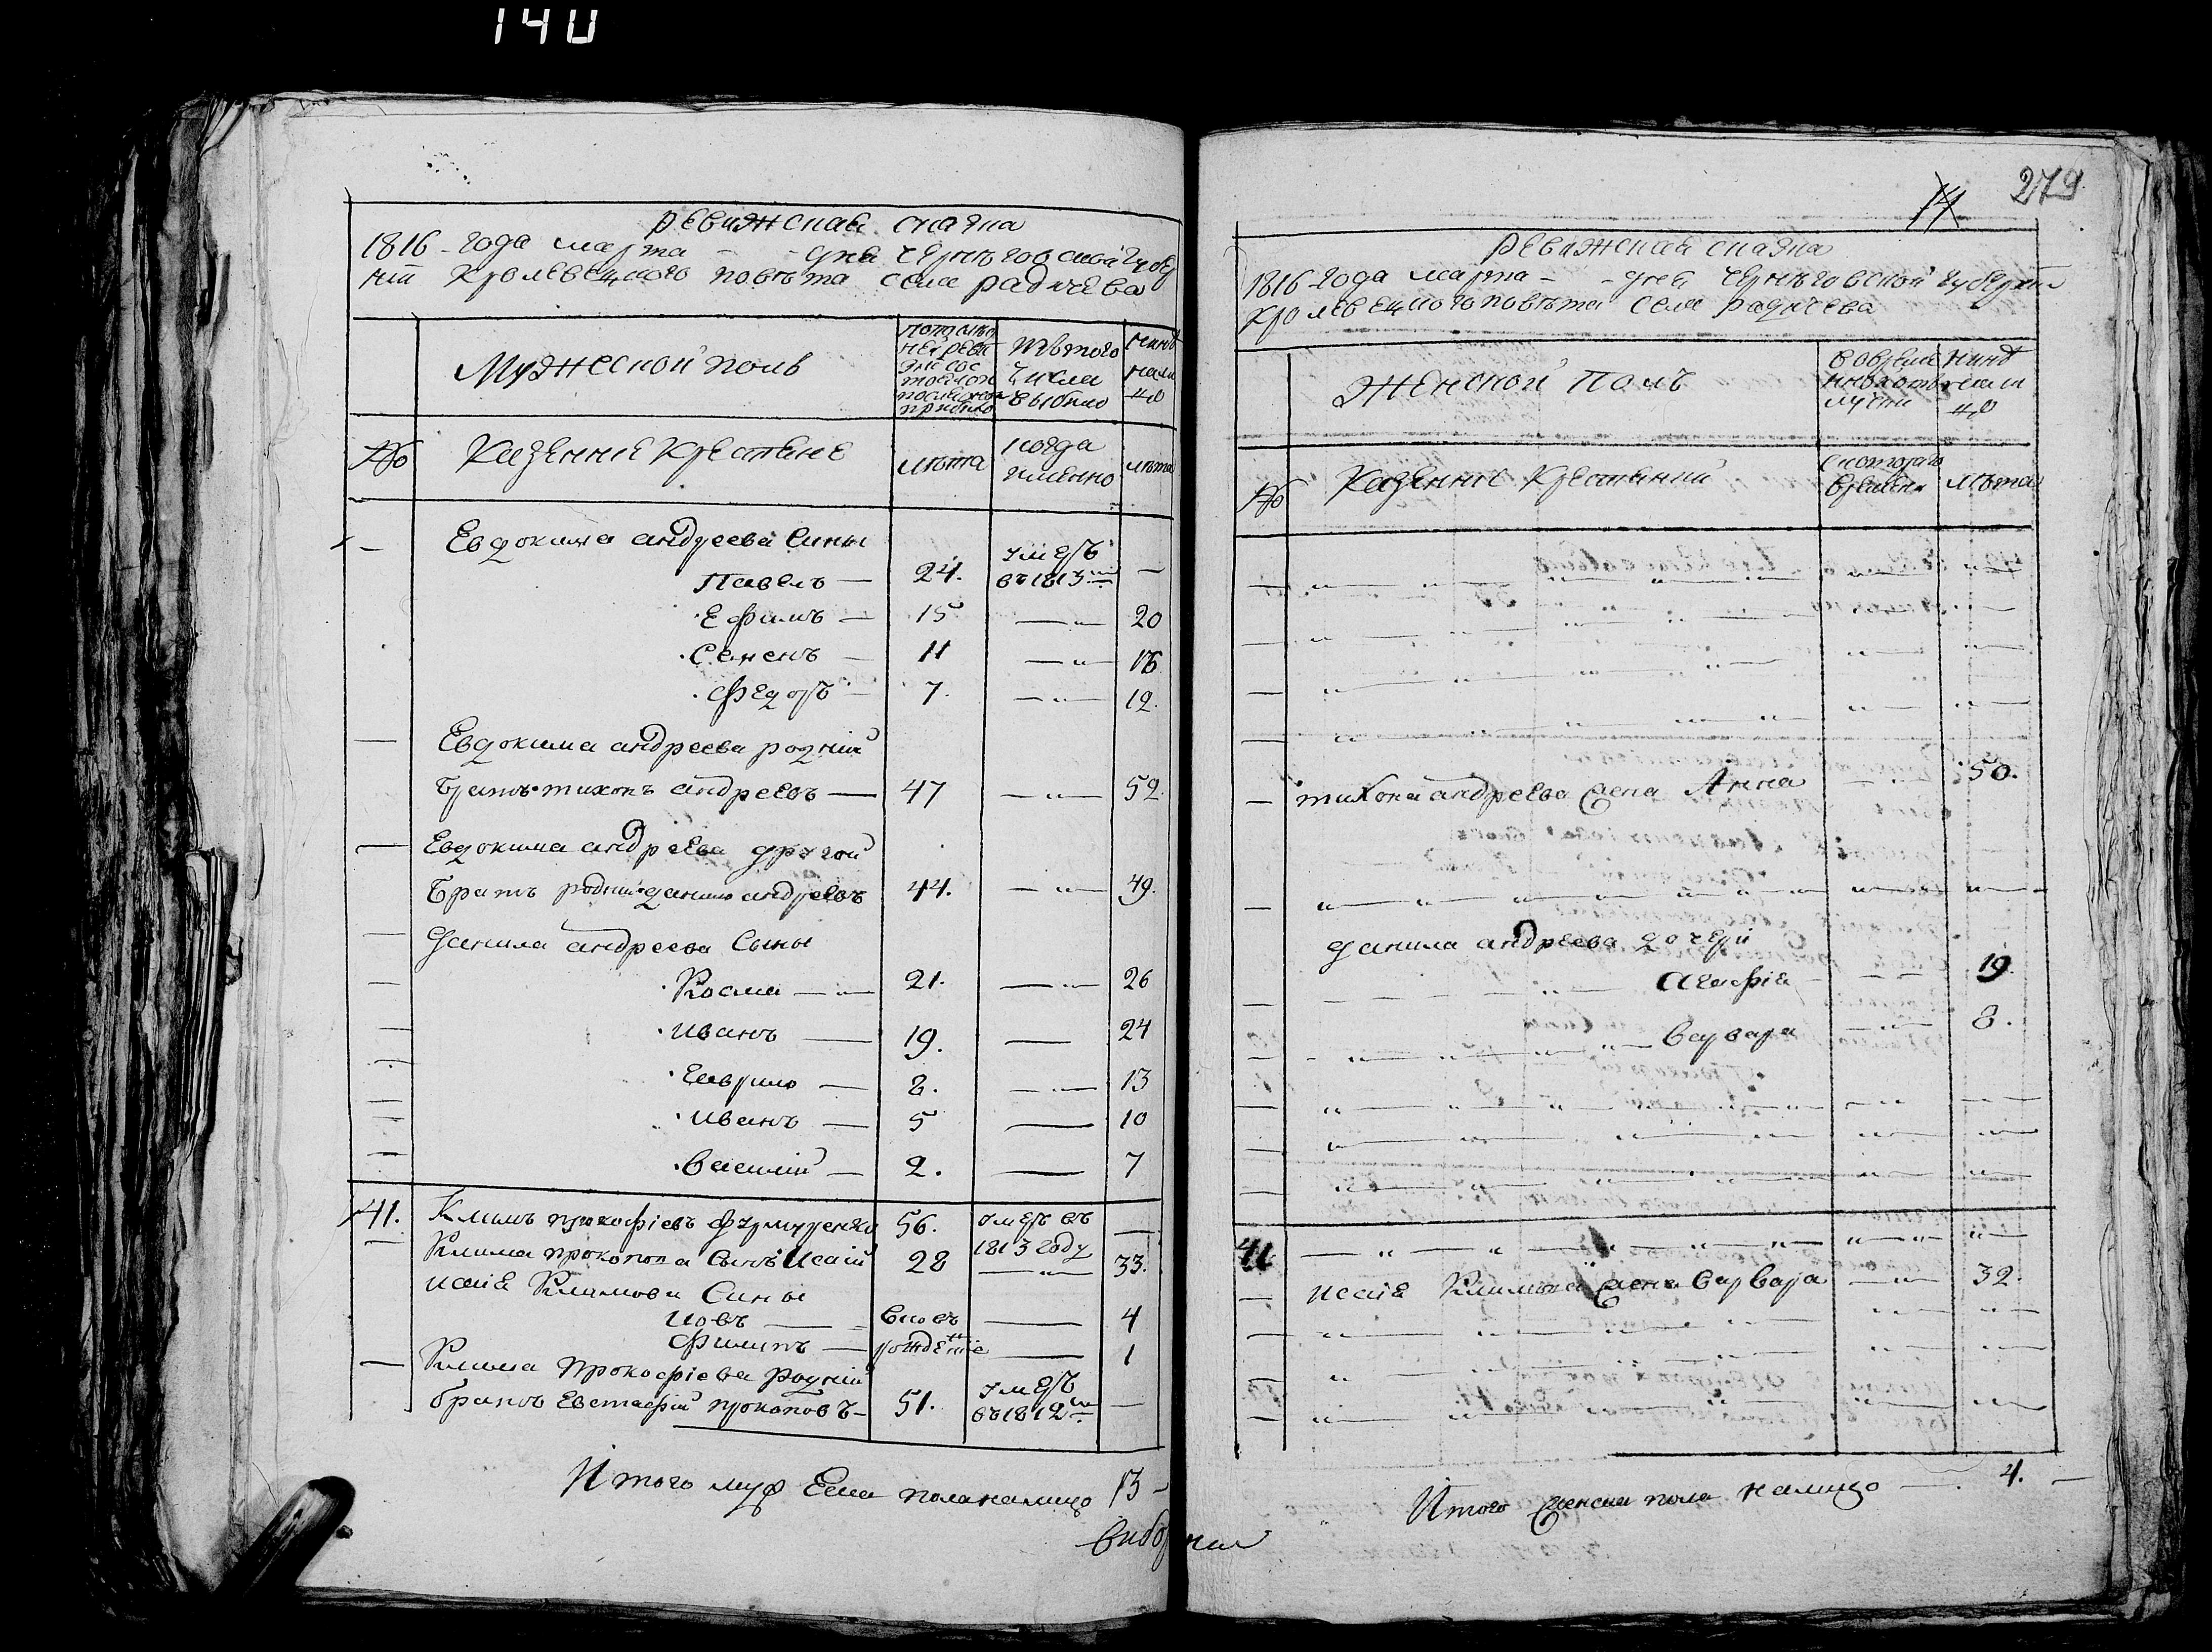 140
Ревижская сказка
1816 года марта - - дня Черниговской Губер
нии Кролевецкого повета села радичева
Мужеской полъ
По последней ревизие состояло и после оной прибыло
Изъ того числа выбыло
Ныне на лицо
№ Казенние Крестяне лета когда именно лета
Евдокима андреева Сины
Павелъ — 24. умеръ въ 1813мъ —
Ефимъ — 15 — 20
Семенъ — 11 — 16
Федоръ — 7. — 12.
Евдокима андреева родний
братъ тихонъ андреевъ — 47 — 52.
Евдокима андреева другой
братъ родний данило андреевъ 44. — 49.
Данила андреева Сыны
Косма — 21. — 26
Иванъ — 19. — 24
Гаврило — 8. — 13
Иванъ — 5 — 10
Василий — 2. — 7
41. Климъ прокофіевъ 56. умеръ въ 1813 году —
Клима прокопова Сынъ Исаій 28 — 33.
Исаія Климова Сины
Иовъ — вновь — 4
Филипъ — рожденніе — 1
Клима Прокофіева Родний
братъ Евстафій прокоповъ — 51. умеръ въ 1812мъ —
Итого мужеска пола налицо 13 -
14 279
Ревижская сказка
1816 года марта - - дня Черниговской Губернии
Кролевецкого повета села радичева
Женской Полъ
Во временной отлучки
Ныне на лицо
№ Казенние Крестянки С которого времени лета
тихона андреева жена Анна — 50.
данила андреева дочери
Агафія — 19.
Варвара — 8.
41
Исаія Климова жена Варвара — 32.
Итого женска пола налицо — 4. —